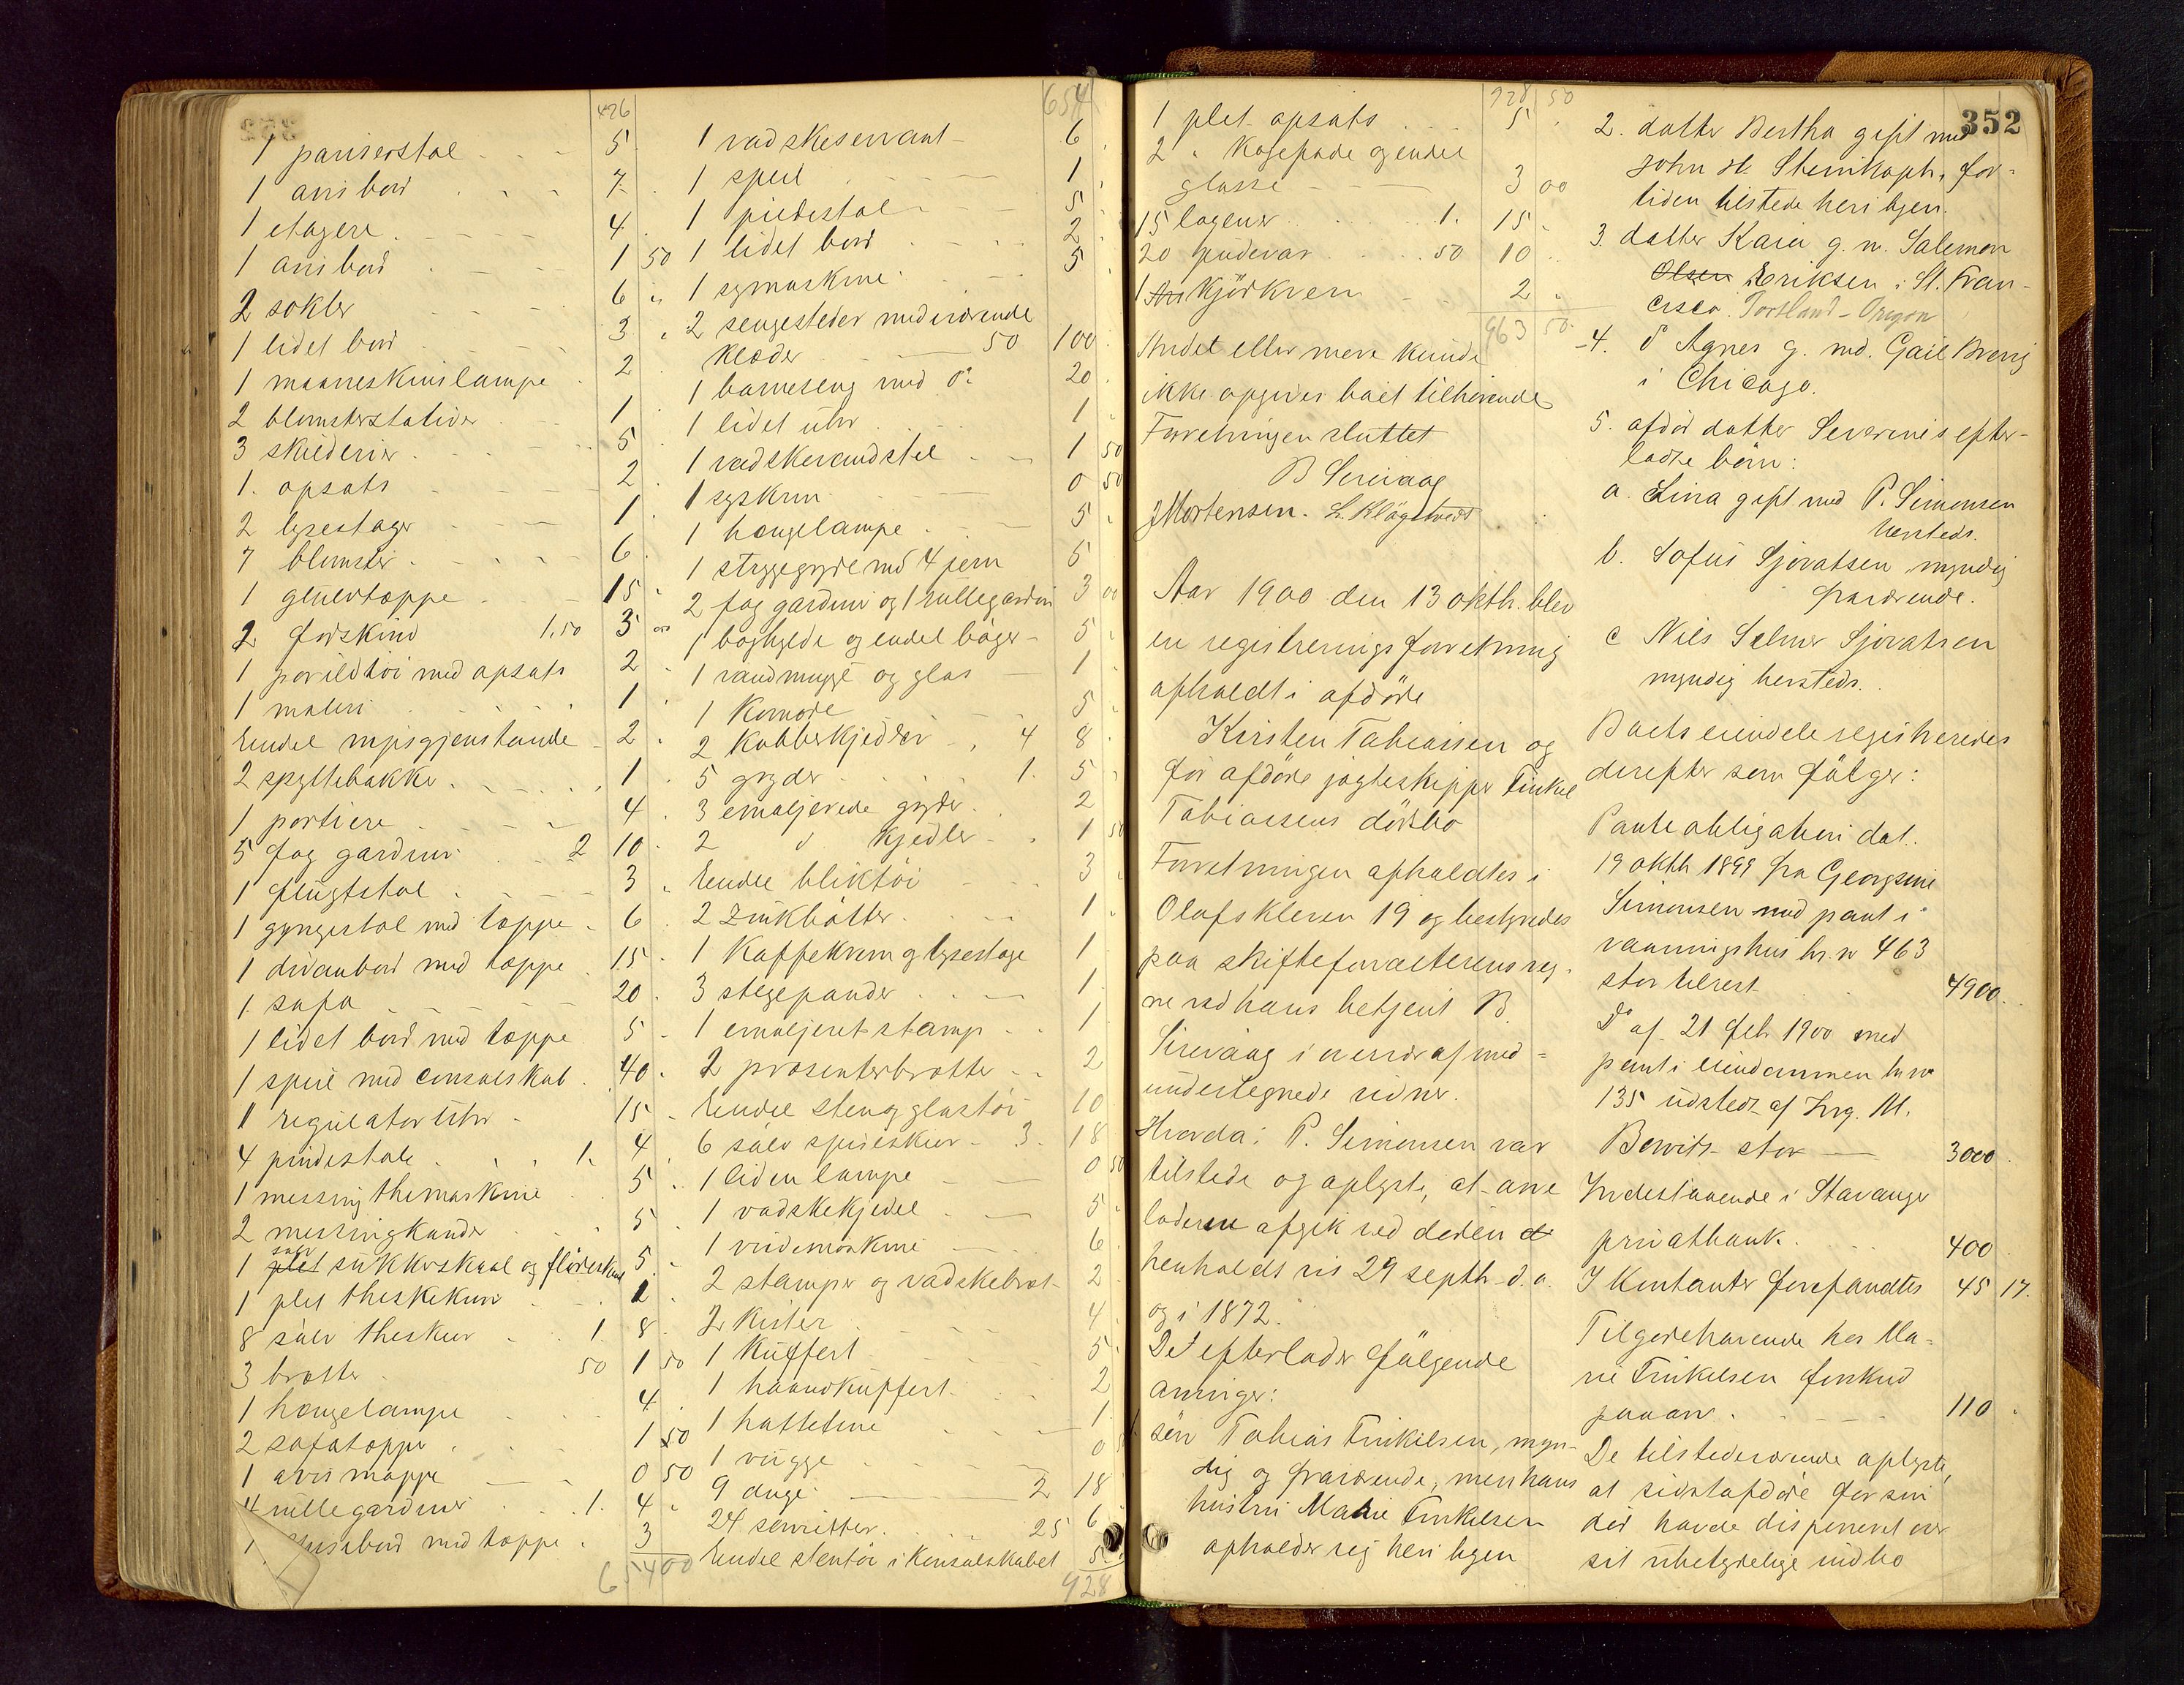 426
1 pariserstol - - 5.
1 avisbord . - - 7.
1 etagere . - - - 4.
1 avisbord . - - 1 50
2 sokler 6 "
1 lidet bord - - 3 "
1 maaneskinslampe . 2 .
2 blomsterstativer - 1 .
3 skilderier - - - 5 .
1. opsats - - - 2 .
2 lysestager - - 1 .
7 blomster . - - 6 .
1 gulvtæppe - - 15 .
2 forskind 1.50 3 00
1 porildtøi med opsats 2 "
1 maleri - - - 1 .
Endel nipsgjenstande - 2 .
2 spyttebakker . - - 1 .
1 portiere - - - 4 .
5 fag gardiner . - 2 10 .
1 flugtstol . - - 3 "
1 gyngestol med tæppe - 6 .
1 divanbord med tæppe . 15 .
1. sofa - - - 20 .
1 lidet bord med tæppe 5 -
1 speil med consolskab . 40 .
1 regulatoruhr - 15 -
4 pindestole . . 1. 4 .
1 messing themaskine . 5 .
2 messingkander . 5 .
sølv
1 plet sukkerskaal og flødeskaal 5 .
1 plet theskekurv - . 2 .
8 sølv theskeer . 1. 8 .
3 bratter . 50 1 50
1 hængelampe . 4 .
2 sofatæpper . - 1 50
1 avismappe - - 0 50
4 rullegardiner . . 1. 4 "
1 spisebord med tæppe . 3
654 00
654
1 vadskeservant - 6 .
1 speil - - - 1 .
1 piedestal - - 5
1 lidet bord - - 2 .
1 symaskine - - 5 .
2 sengesteder med iværende
klæder - 50 100 .
1 barneseng med do 20 .
1 lidet uhr . . 1 .
1 vadskevandstel - 1 50
1 syskrin - - 0 50
1 hængelampe . - 5 .
1 strygegryde md 4 jern 5
2 fag gardiner og 1 rullegardin 3 00
1 boghylde og endel bøger - 5 .
1 vandmugge og glas - 1 .
1 Komode - - 5 .
2 kobberkjedler - 4 8 .
5 gryder . . . 1. 5 .
3 emaljerede gryder . 2
2 do kjedler . . 1 50
Endel bliktøi - - 3 .
2 Zinkbøtter . - - 1 .
1 Kaffekvern og lysestage 1
3 stegepander . . - 1
1 emaljeret stamp - . 1
2 præsenterbrætter - . 2
Endel sten og glastøi . 10
6 sølv spiseskeer - 3. 18
1 liden lampe - - 0 50
1 vadskekjedel . - 5 .
1 vridemaskine - 6 .
2 stamper og vadskebræt . 2
2 kister . - - - 4 .
1 Kuffert . - - 5 .
1 haandkuffert - - 2
1 hatteteine - - - 1 .
1 vugge - - - 0
9 duge - 2 18
24 servietter . . . 25 6 .
Endel stentøi i Konsolskabet 5 .
928
928 50
1 plet opsats . . - 5 .
2 " Kagefade og endel
glasse - - - 3 00
15 lagener . . . 1. 15 .
20 pudevar . . . 50 10 .
1 Kjødkvern . - 2 .
963 50
Andet eller mere kunde
ikke opgives boet tilhørende
Forretningen sluttet
B Sirevaag
J Mortensen. L. Kløgetvedt
Aar 1900 den 13 oktb. blev
en registreringsforretning
afholdt i afdøde
Kirsten Tobiassen og
før afdøde jagteskipper Tinkel
Tobiassens dødsbo
Forretningen afholdtes i
Olafskleven 19 og bestyredes
paa skifteforvalterens veg-
ne ved hans betjent B.
Sirevaag i overvær af med-
undertegnede vidner.
Hvorda: P. Simonsen var
tilstede og oplyste, at arve
laderen afgik ved døden
henholdsvis 29 septb. d. a.
og i 1872.
De efterlader følgende
arvinger:
1 søn Tobias Tinkelsen, myn-
dig og fraværende, men hans
hustru Marie Tinkelsen
opholder sig her i byen
352
2. datter Bertha gift med
John H. Steinkoph, for-
tiden tilstede her i byen.
3. datter Kaia g. m. Salemon
Olsen Eriksen i St. Fran-
cisco. Portland - Oregon
4. do Agnes g. md. Gail Breng
i Chicago.
5. afdød datter Severines efter-
ladte børn:
a. Lina gift med P. Simonsen
hersteds.
b. Sofus Sjovatsen myndig
fraværende.
c Nils Selmer Sjovatsen
myndig hersteds.
Boets eiendele registreredes
derefter som følger:
Panteobligation dat.
19 oktb 1899 fra Georgsine
Simonsen med pant i
vaaningshus br. no 463
stor tilrest . . 4900.
Do af 21 feb 1900 med
pant i eiendommen br no
135 udstedt af Ing. M.
Bowitz stor - 3000 .
Indestaaende i Stavanger
privatbank . . . 400
I Kontanter forefandtes 45 17.
Tilgodehavende hos Ma-
rie Tinkelsen forskud
paa arv . - - - 110 .
De tilstedeværende oplyste,
at sidstafdøde før sin
død havde disponeret over
sit ubetydelige indbo